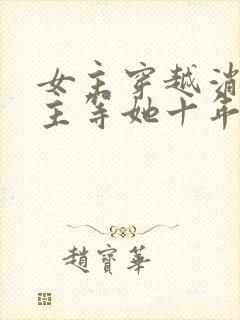 女主穿越消
主等她十年
趙寶華